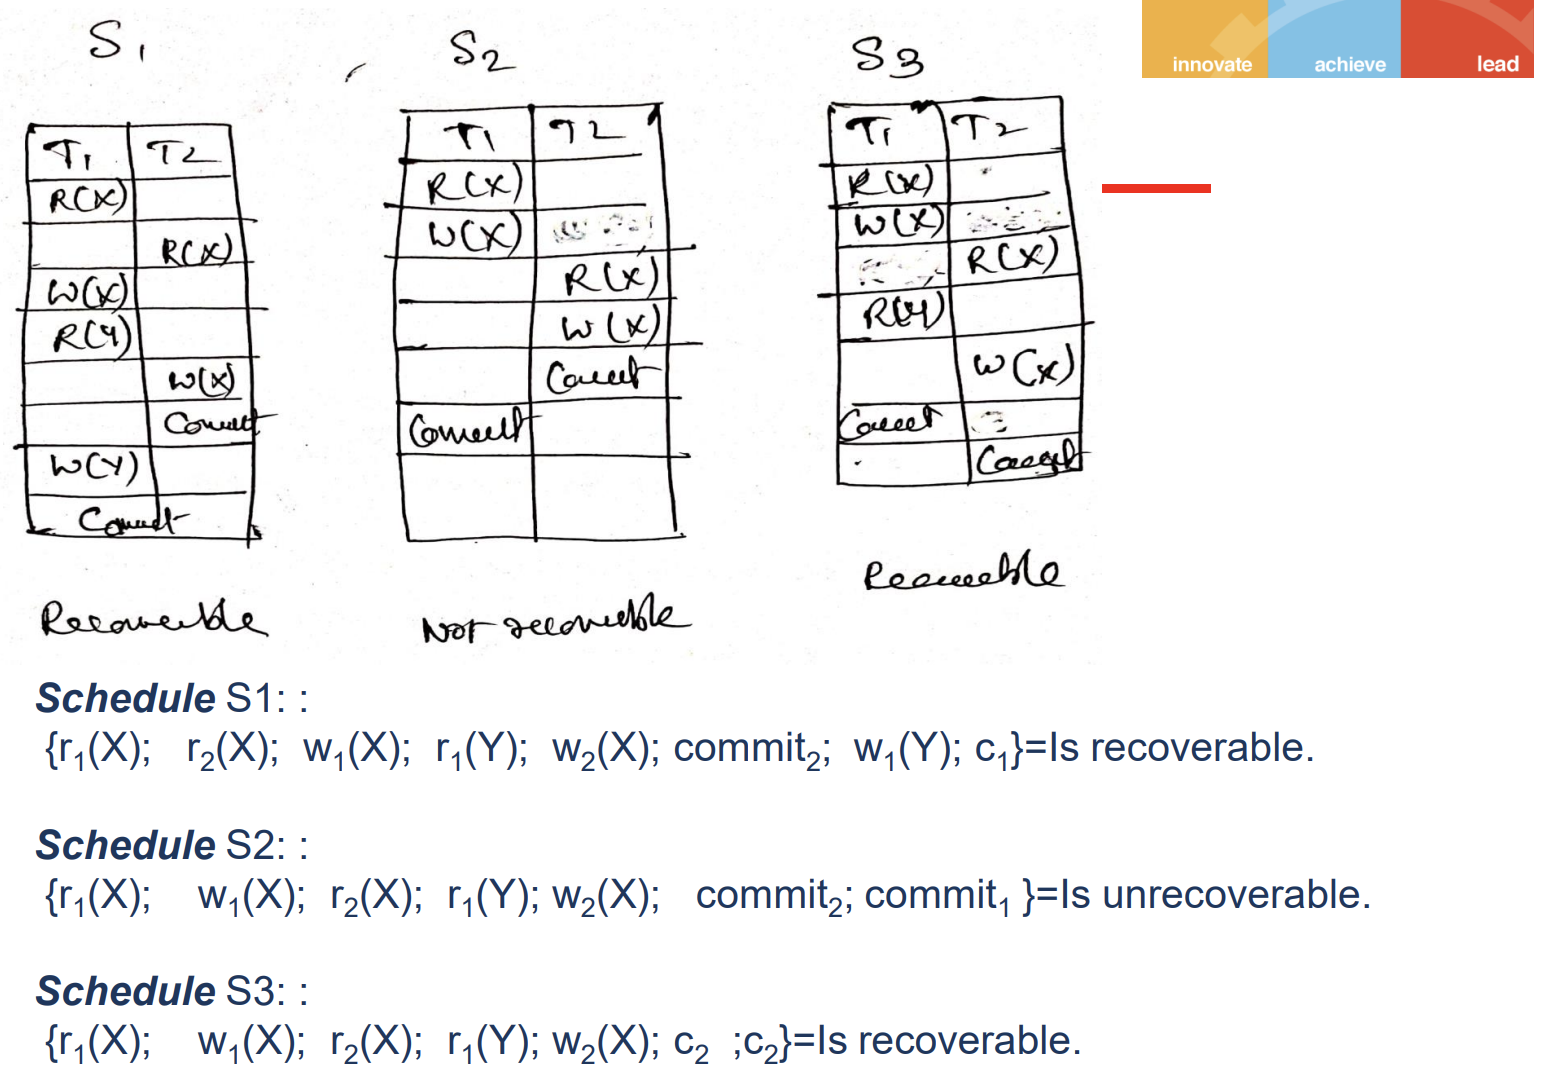 innovate achieve lead
S1
T1 T2
R(X)
R(X)
W(X)
R(Y)
W(X)
Commit
W(Y)
Commit
Recoverable
S2
T1 T2
R(X)
W(X)
R(X)
W(X)
Commit
Commit
Not recoverable
S3
T1 T2
R(X)
W(X)
R(X)
R(Y)
W(X)
Commit
Commit
Recoverable
Schedule S1: :
{r₁(X); r₂(X); w₁(X); r₁(Y); w₂(X); commit₂; w₁(Y); c₁}=Is recoverable.
Schedule S2: :
{r₁(X); w₁(X); r₂(X); r₁(Y); w₂(X); commit₂; commit₁ }=Is unrecoverable.
Schedule S3: :
{r₁(X); w₁(X); r₂(X); r₁(Y); w₂(X); c₂ ;c₂}=Is recoverable.